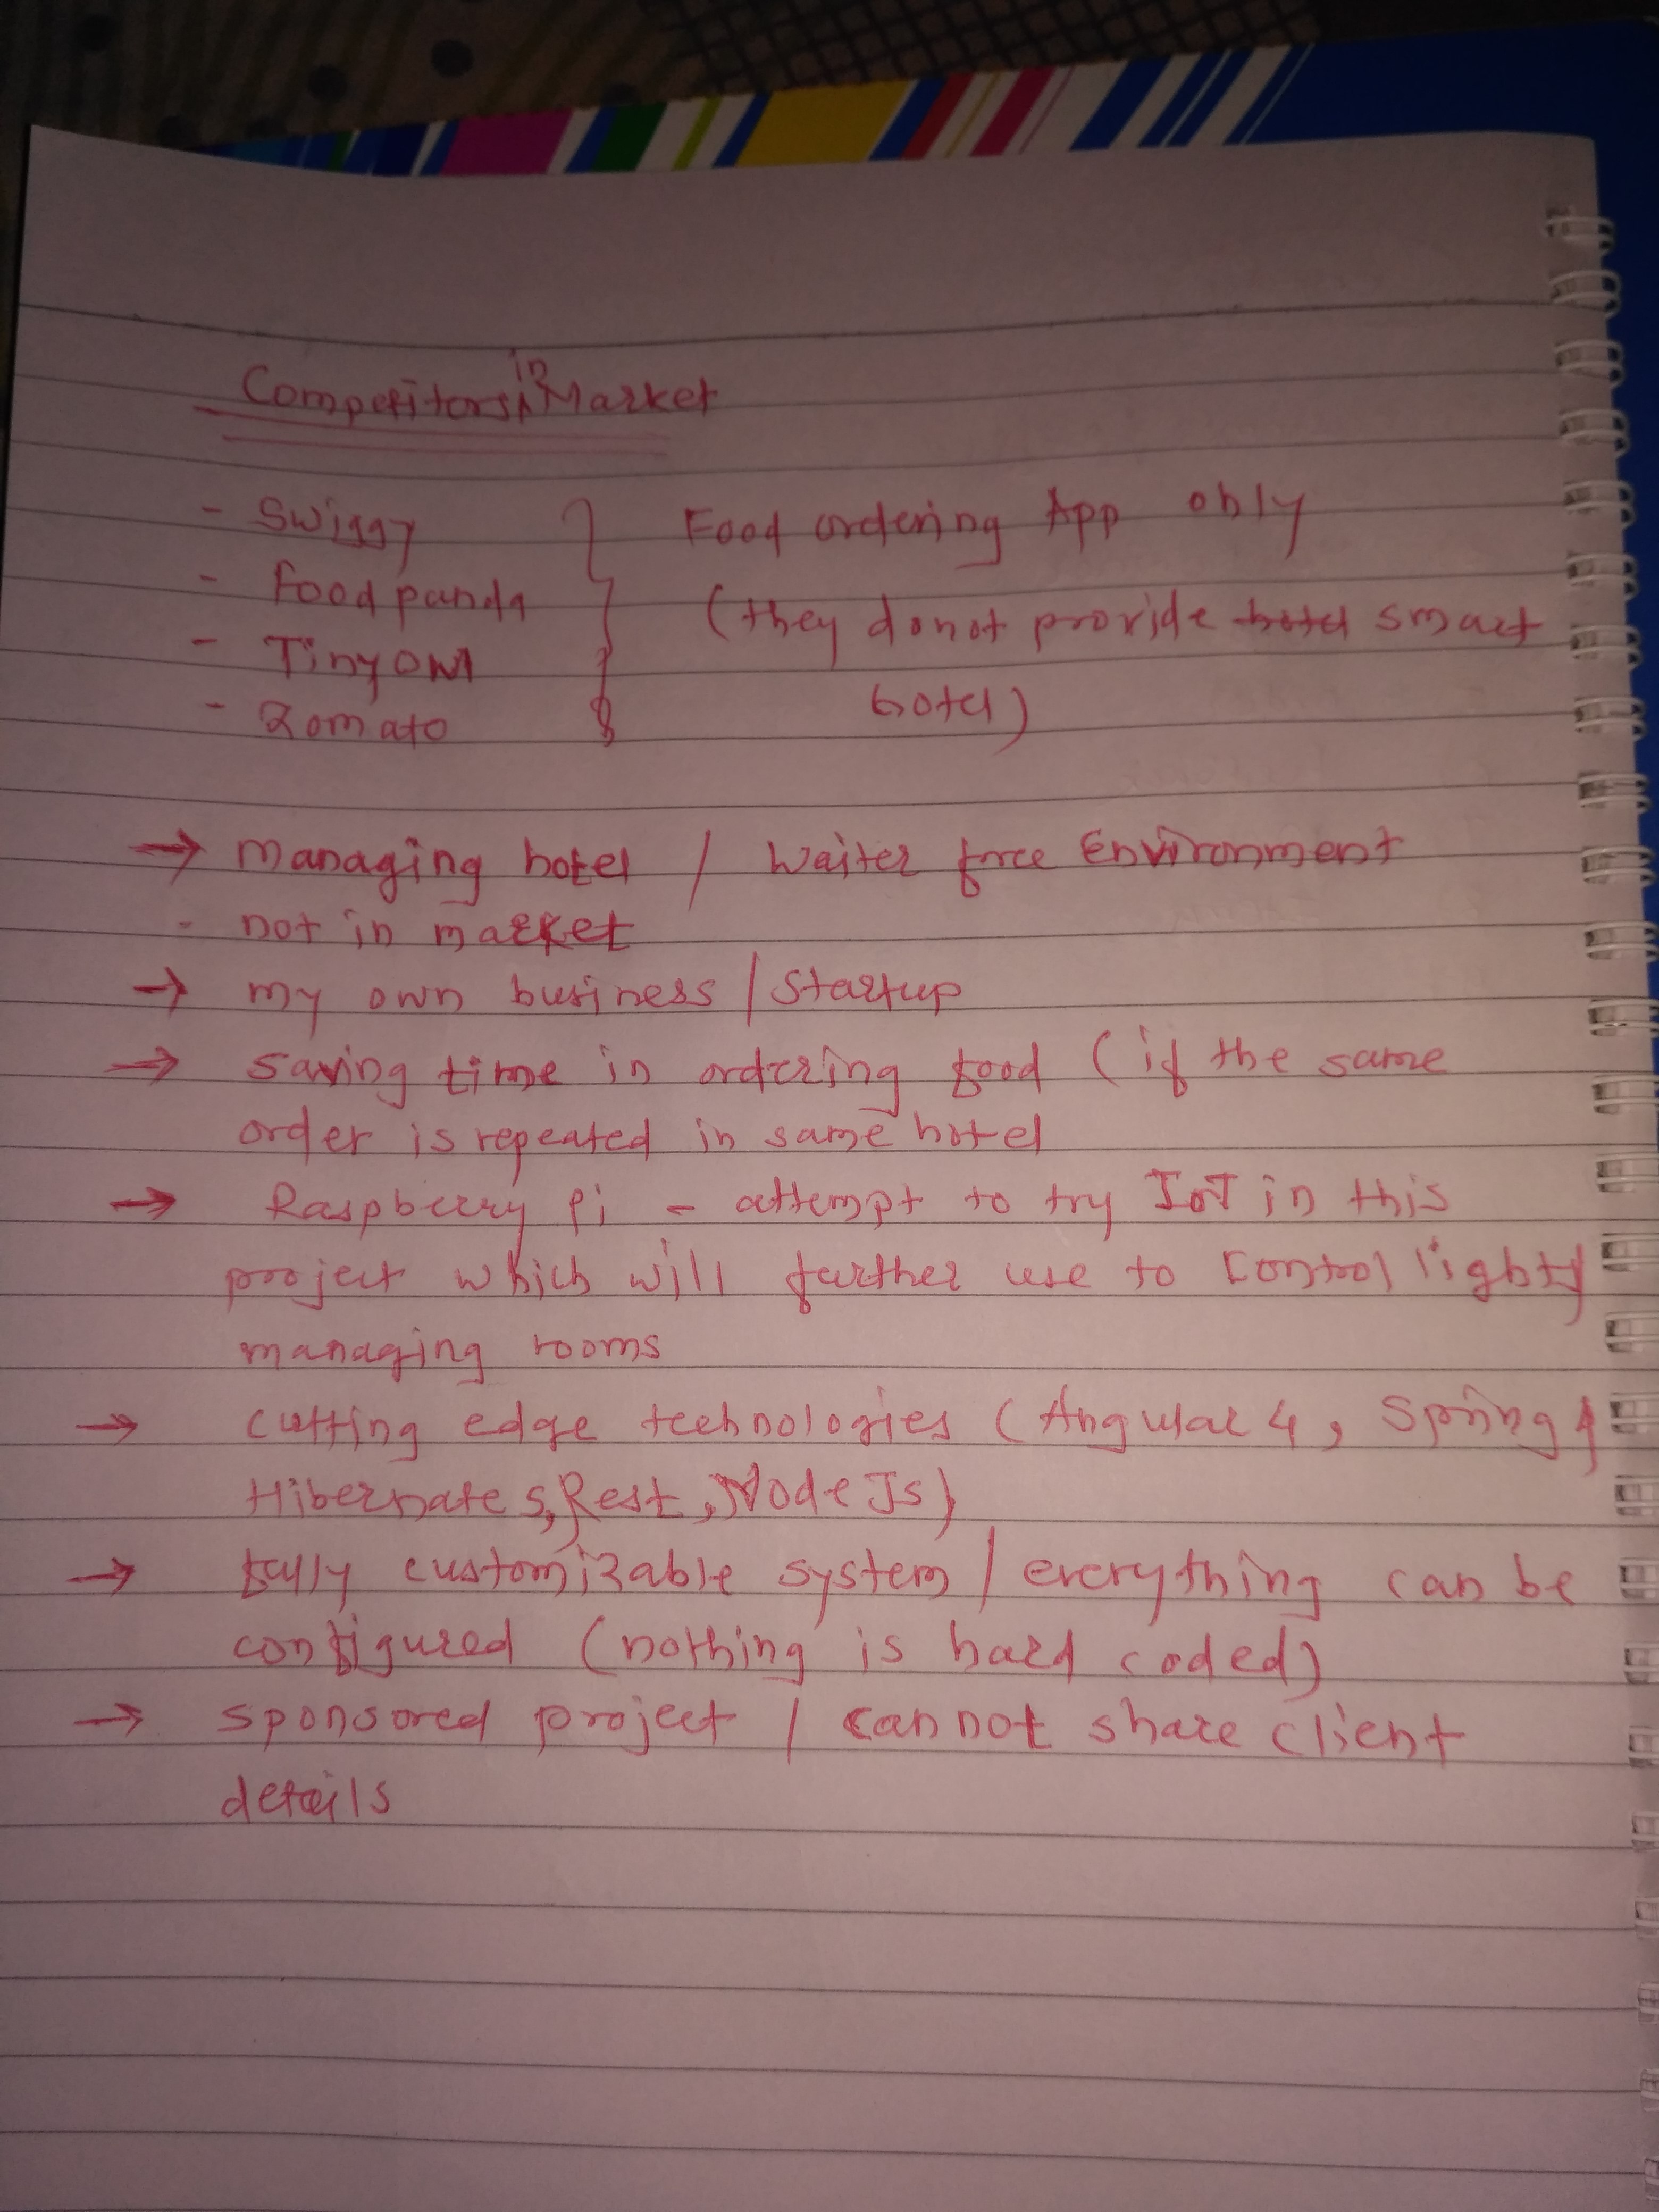 Competitors in Market
- Swiggy
- Foodpanda
- Tinyowl
- Zomato
Food ordering App only
(they donot provide hotel smart
hotel)
→ Managing hotel / Waiter free Environment
- not in market
→ my own business / Startup
→ saving time in ordering food (if the same
order is repeated in same hotel
→ Raspberry Pi - attempt to try IoT in this
project which will further use to control lights
managing rooms
→ cutting edge technologies (Angular 4, Spring 4
Hibernate 5, Rest, Node Js)
→ fully customizable system / everything can be
configured (nothing is hard coded)
→ sponsored project / cannot share client
details